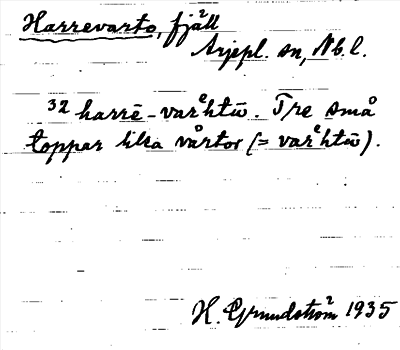 Harrevarto, fjäll
Arjepl. sn, Nb. l.
32 harrē-varͤhtū. Tre små
toppar lika vårtor (= varͤhtū).
H. Grundström 1935